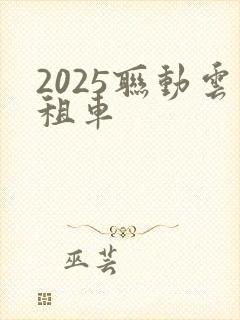 2025聯動雲
租車
巫芸